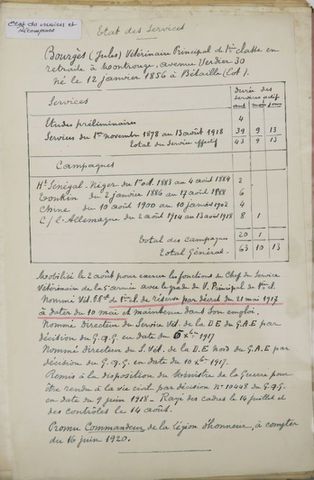 Etat de services et récompenses
Etat des Services
Bourgès (Jules) Vétérinaire Principal de 1ère classe en
retraite à Montrouge, avenue Verdier 30
Né le 12 janvier 1856 à Bétaille (Lot).
Services
Durée des services actif
ans mois jours
Etudes préliminaires 4
Services du 1er novembre 1878 au 13 août 1918 39 9 13
Total du Service effectif 43 9 13
Campagnes
Ht Sénégal-Niger du 1er oct. 1883 au 4 août 1884 2
Tonkin du 2 janvier 1886 au 17 août 1888 6
Chine du 10 août 1900 au 10 janvier 1902 4
C/ l'Allemagne du 2 août 1914 au 13 août 1918 8 1
Total des Campagnes 20 1
Total Général 63 10 13
Mobilisé le 2 août pour exercer les fonctions de Chef du Service
Vétérinaire de la 5e armée avec le grade de V. Principal de 1ère cl.
Nommé Vét. de 1ère cl. de réserve par décret du 21 mai 1917
à dater du 10 mai et maintenu dans son emploi.
Nommé Directeur du Service Vét. de la D.E du G.A.E par
décision du G.Q.G. en date du 1917
Nommé Directeur du S. Vét. de la D.E Nord du G.A.E par
décision du G.Q.G. en date du 1917.
Remis à la disposition du Ministre de la Guerre pour
être rendu à la vie civil par décision No 10448 du G.Q.G.
en date du 9 juin 1918 - Rayé des cadres le 14 juillet et
des contrôles le 14 août.
Promu Commandeur de la Légion d'honneur, à compter
du 16 juin 1920.